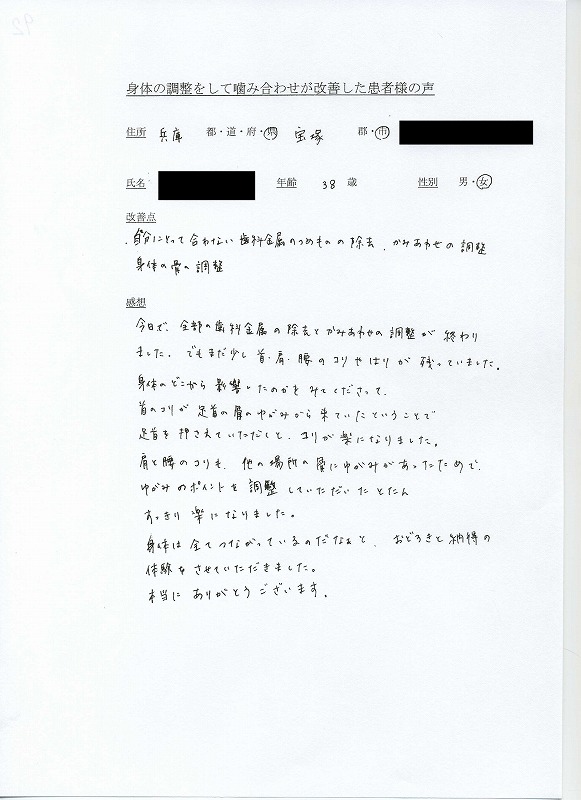 92
身体の調整をして噛み合わせが改善した患者様の声
住所 兵庫 都・道・府・県 宝塚 郡・市
氏名 年齢 38 歳 性別 男・女
改善点
・自分にとって合わない歯科金属のつめものの除去、かみあわせの調整
身体の骨の調整
感想
今日で、全部の歯科金属の除去とかみあわせの調整が終わり
ました。でもまだ少し首、肩、腰のコリやはりが残っていました。
身体のどこから影響したのかをみてくださって、
首のコリが足首の骨のゆがみから来ていたということで
足首を押さえていただくと、コリが楽になりました。
肩と腰のコリも、他の場所の骨にゆがみがあったためで、
ゆがみのポイントを調整していただいたとたん
すっきり楽になりました。
身体は全てつながっているのだなぁと、おどろきと納得の
体験をさせていただきました。
本当にありがとうございます。